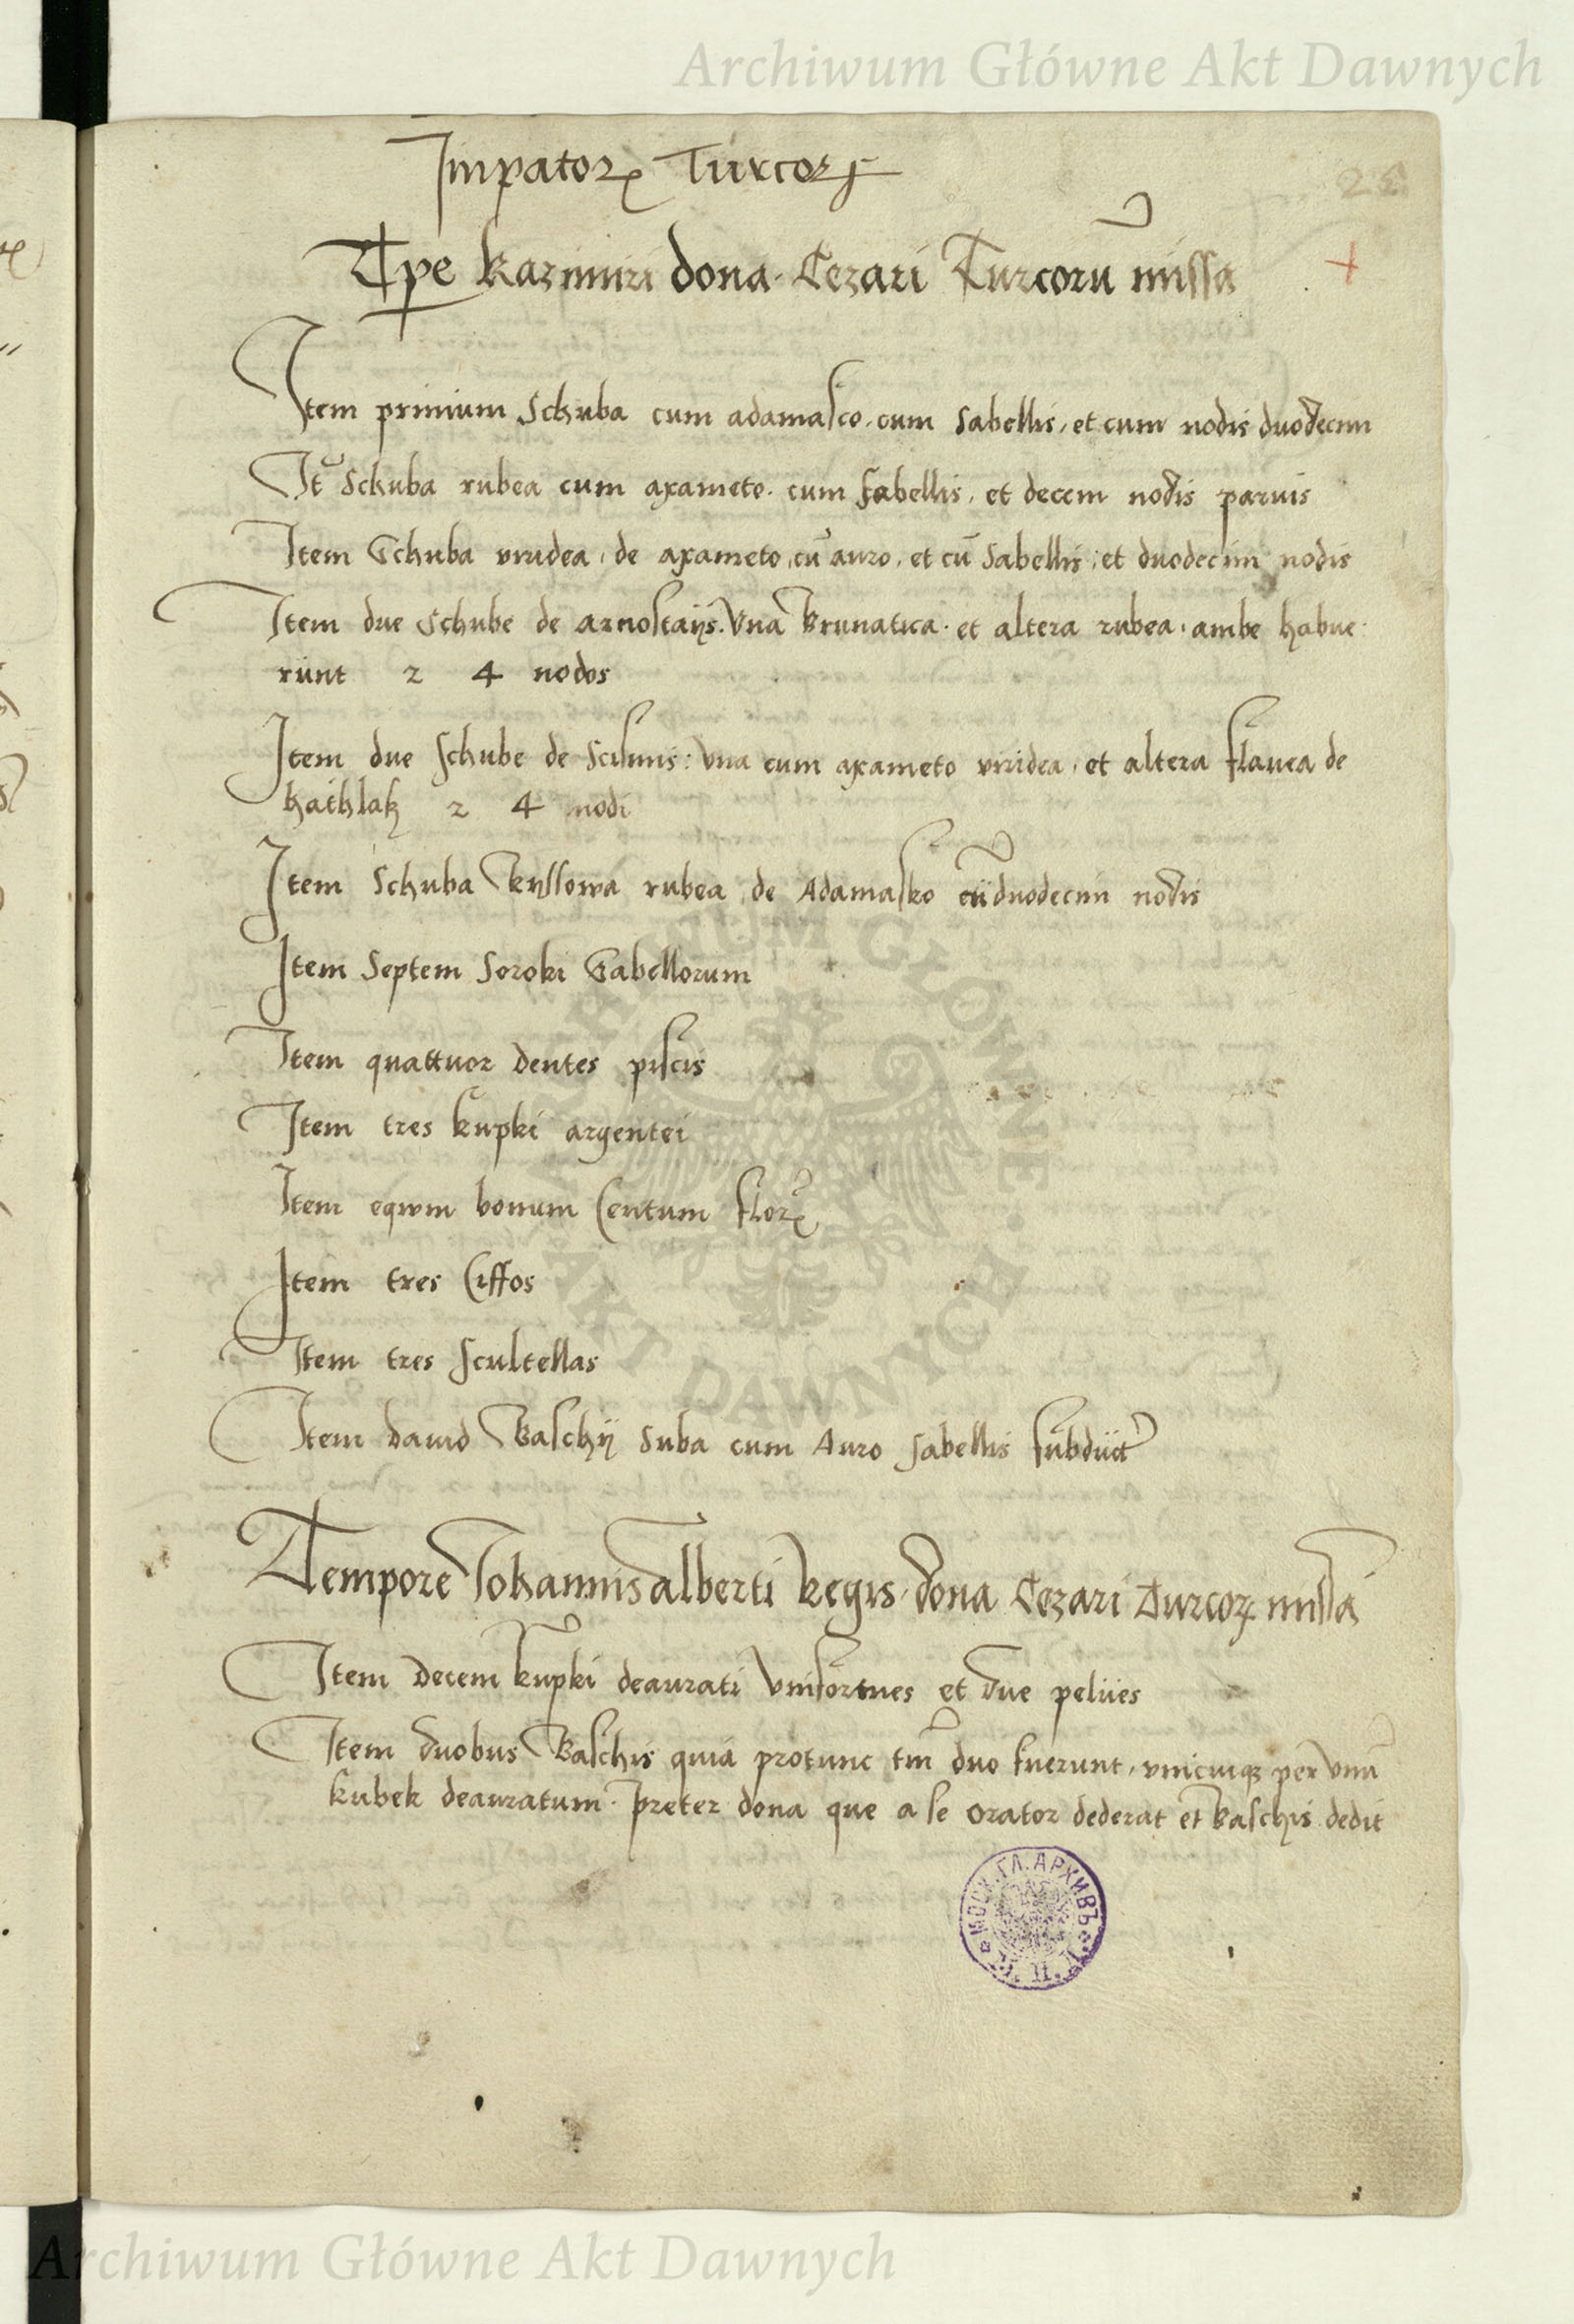 Archiwum Główne Akt Dawnych
Impatorꝝ Turcorꝝ
25
Tpe Kazimiri dona Cezari Turcorū missa
+
Item primum Schuba cum adamasco, cum sabellis, et cum nodis duodecim
It̄ Schuba rubea cum axameto, cum sabellis, et decem nodis paruis
Item Schuba viridea, de axameto, cū auro, et cū sabellis, et duodecim nodis
Item due Schube de arnostaijs. Vna brunatica. et altera rubea, ambe habue-
runt 2 4 nodos
Item due schube de scismis: vna cum axameto viridea, et altera flauea de
kathlak 2 4 nodi
Item Schuba kyssowa rubea de Adamasko cū duodecim nodis
Item Septem Soroki Sabellorum
Item quattuor dentes piscis
Item tres kupki argentei
Item eqwm bonum Centum florꝝ
Item tres Ciffos
Item tres scultellas
Item dauid Baschij suba cum Auro sabellis subduct̄
Tempore Iohannisalberti Regis dona Cezari Turcorꝝ missa
Item Decem kupki deaurati vniformes et due pelues
Item duobus Baschis quia protunc tm̄ duo fuerunt, vnicuiqꝫ per vnū
kubek deauratum. preter dona que a se orator dederat et baschis dedit
ARCHIWUM GŁÓWNE AKT DAWNYCH
МОСК. ГЛ. АРХИВЪ
Archiwum Główne Akt Dawnych